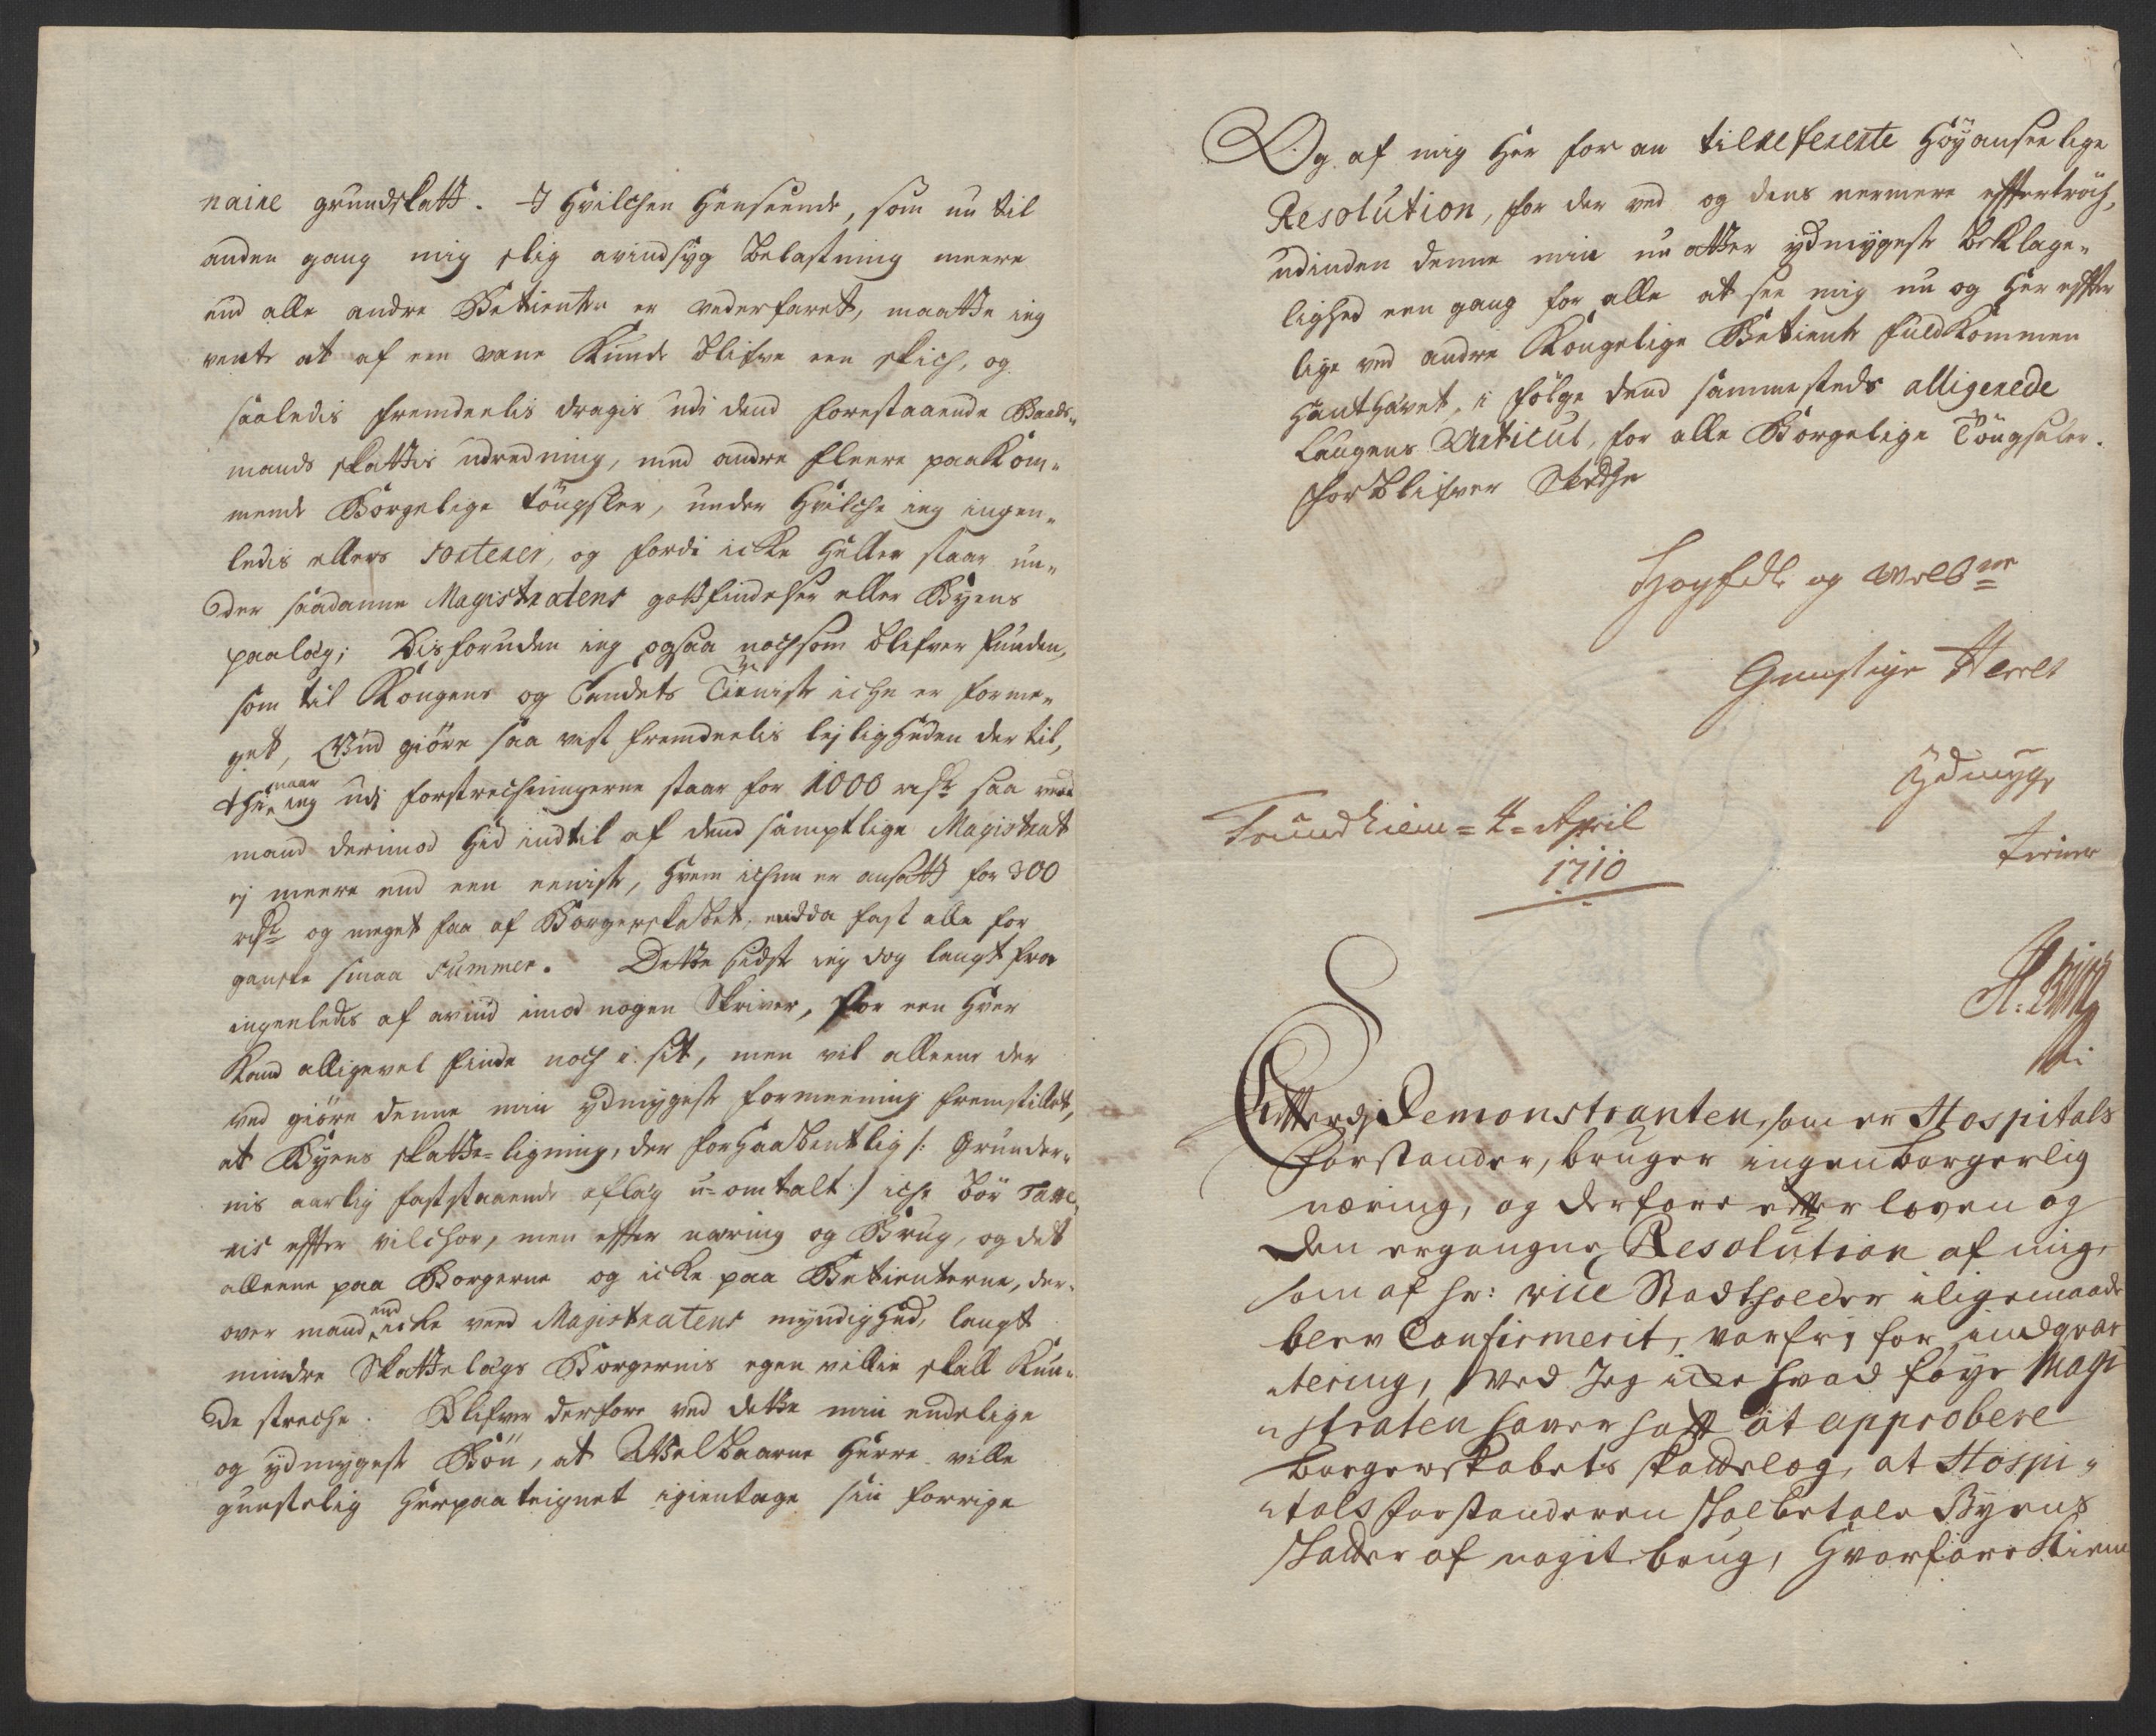 naire grundskatt. I Hvilchen Henseende, som nu til
anden gang mig slig avindsyg belastning meere
end alle andre Betienter er vederfaret, maatte ieg
vente at af een vane Kunde blifve een skich, og
saaledis fremdeelis dragis udi dend forestaaende Baads-
mands skattis udredning, med andre fleere paakom-
mende Borgelige töngsler, under Hvilche ieg ingen-
ledis ellers sorterer, og fordi icke heller staar un-
der saadanne Magistratens gottfindeher eller Byens
paalag; Disforuden ieg ogsaa nochsom blifver funden,
som til Kongens og Landets Tieniste iche er forme-
get, Vnd giöre saa vist fremdeelis lejligheden der til,
thi naar ieg udi forstrechningerne staar for 1000 rdr saa veed
mand derimod hid indtil af dend samptlige Magistrat
ej meere end een eeniste, hvem ichun er ansatt for 300
rdr og meget faa af Borgerskabet, endda fast alle for
ganske smaa summer. Dette sidste ieg dog langt fra
ingenledis af avind imod nogen Skriver, for een hver
Kand alligevel finde noch i sit, men vil alleene der
ved giöre denne min ydmygeste formeening fremstillet,
at Byens skatte-ligning, der forhaabentlig /: Grunder-
nis aarlig faststaaende aflag u-omtalt :/ iche bör Taxe-
ris effter vilchor, men effter næring og Brug, og det
alleene paa Borgerne og icke paa Betienterne, der-
over mand end icke veed Magistratens myndighed, langt
mindre Skattelags Borgernis egen villie skall Kun-
de streche. Blifver derfore ved dette min endelige
og ydmygeste Bön, at Welbaarne Herre ville
gunstelig Herpaateignet igientage sin forrige
Og af mig her for an tilrefererte Höyanseelige
Resolution, for der ved og dens nermere effterträch,
udinden denne min nu atter ydmygeste beklage-
lighed een gang for alle at see mig nu og her effter
lige ved andre Kongelige Betiente fuldkommen
hanthævet, i fölge dend sammesteds alligerede
Laugens Articul, for alle Borgelige Töngseler.
forblifver Stedtse
Hoyædle og Welbne
Gunstige Herres
Ydmyge
tiener
Trundhiem = 4 = April
1710
Efterdj Demonstranten, som er Hospitals
forstander, bruger ingen borgerlig
næring, og derfore efter loven og
den ergangne Resolution af mig,
som af hr: vice Stadtholder iligemaade
blev Confirmerit, var fri for indqvar
tering, Ved Jeg icke hvad föye Magi
straten haver hatt at approbere
borgerskabets skattelog, at Hospi-
tals forstanderen skal betale Byens
skatter af nogit brug, Hvorfore